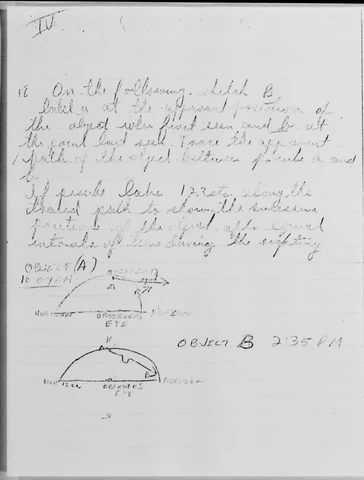 IV
18 On the following sketch B,
label a at the apparent position of
the object when first seen and b at
the point last seen. Trace the apparent
path of the object between points a and
b.
If possible label 1, 2, 3 etc along the
traced path to show the
positions of the object at
intervals of time during the sighting
OBJECT (A)
10 07 AM
A
HORIZON OBSERVERS HORIZON
EYE
OBJECT B 2:35 PM
N
HORIZON OBSERVERS HORIZON
EYE
S